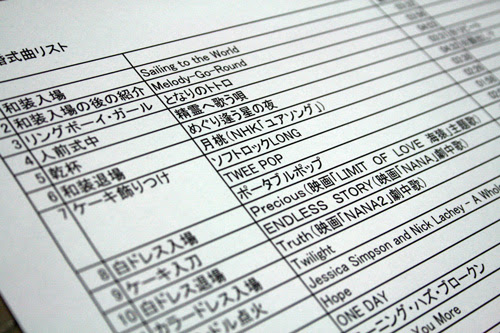 式曲リスト
1 和装入場 Sailing to the World
2 和装入場の後の紹介 Melody-Go-Round
3 リングボーイ・ガール となりのトトロ
4 人前式中 精霊へ歌う唄
5 乾杯 めぐり逢う星の夜
6 和装退場 月桃(NHK「ユアソング」)
7 ケーキ飾りつけ ソフトロックLONG
TWEE POP
ポータブルポップ
Precious(映画「LIMIT OF LOVE 海猿」主題歌)
8 白ドレス入場 ENDLESS STORY(映画「NANA」劇中歌)
9 ケーキ入刀 Truth(映画「NANA2」劇中歌)
10 白ドレス退場 Twilight
カラードレス入場 Jessica Simpson and Nick Lachey - A
ドル点火 Hope
ONE DAY
ニング・ハズ・ブロークン
You More